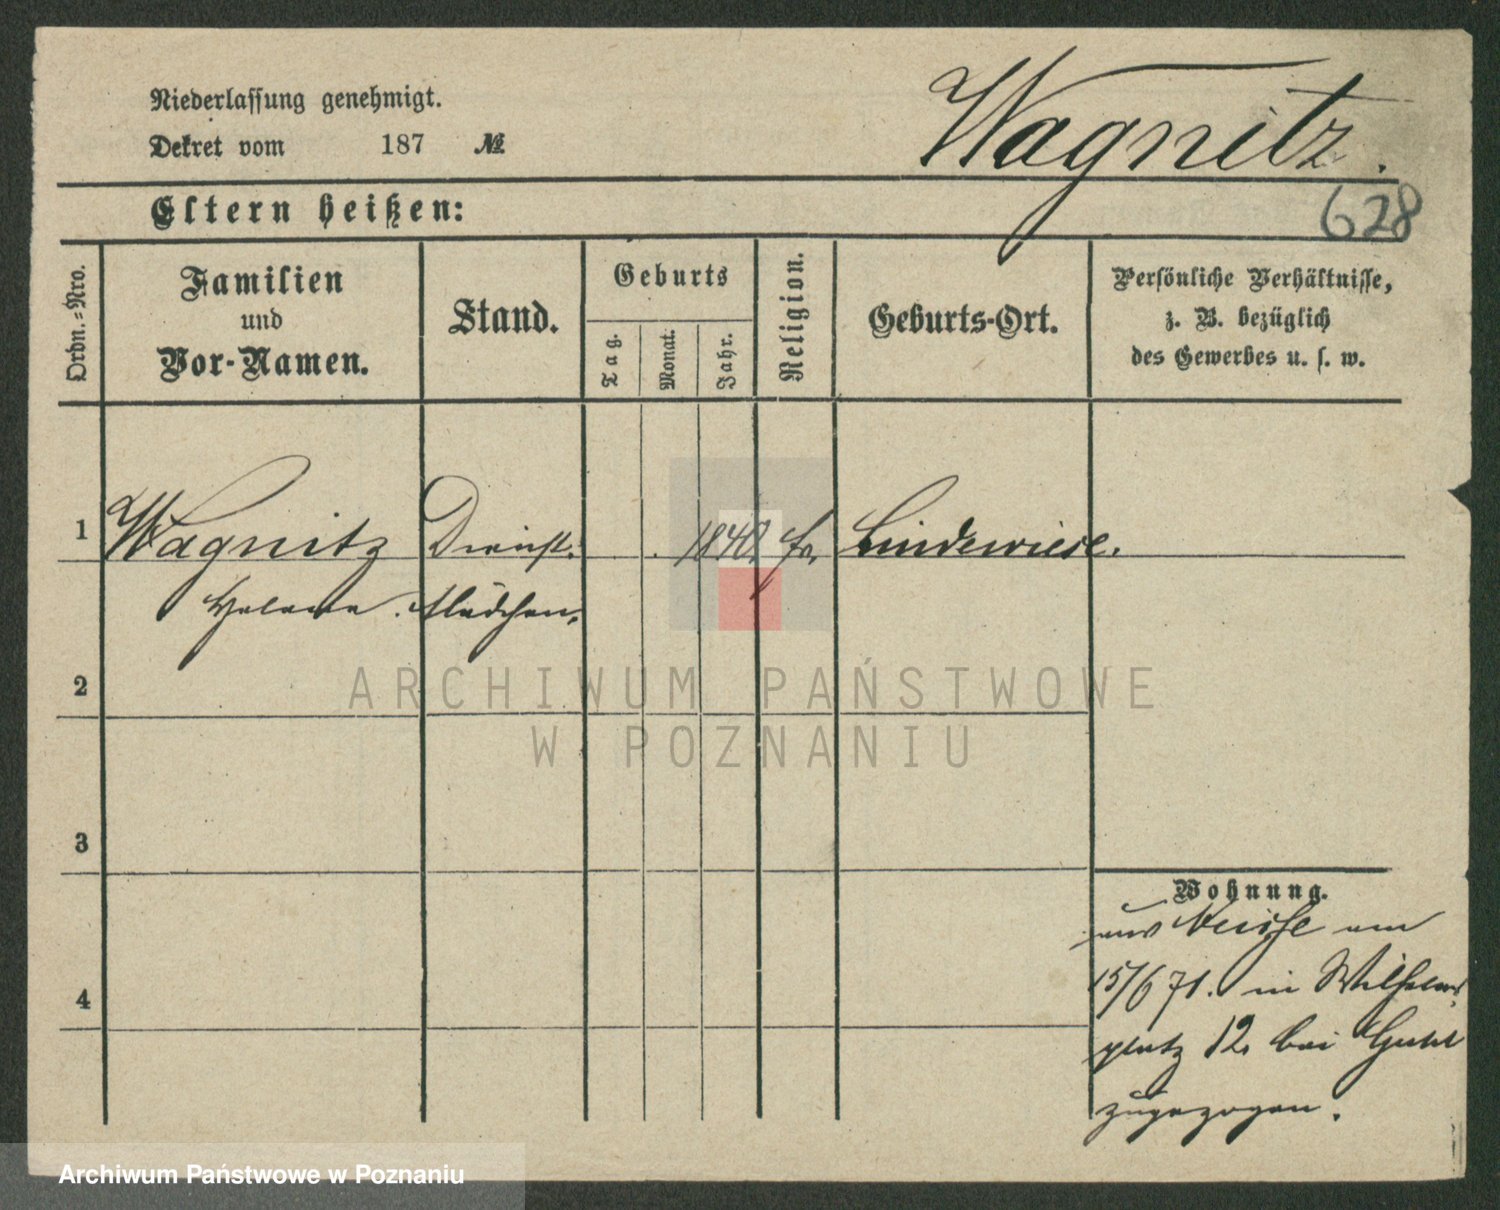 Niederlassung genehmigt.
Dekret vom 187 №
Wagnitz.
Eltern heißen:
628
Ordn.=Nro.
Familien
und
Vor-Namen.
Stand.
Geburts
Tag.
Monat.
Jahr.
Religion.
Geburts-Ort.
Persönliche Verhältnisse,
z. B. bezüglich
des Gewerbes u. s. w.
1 Wagnitz Dienst. 1848 Lindewiese.
Helene. Mädchen.
2
3
4
Wohnung.
aus Neisse am
15/6 71. in Wilhelms
platz 12 bei
zugezogen.
ARCHIWUM PAŃSTWOWE
W POZNANIU
Archiwum Państwowe w Poznaniu